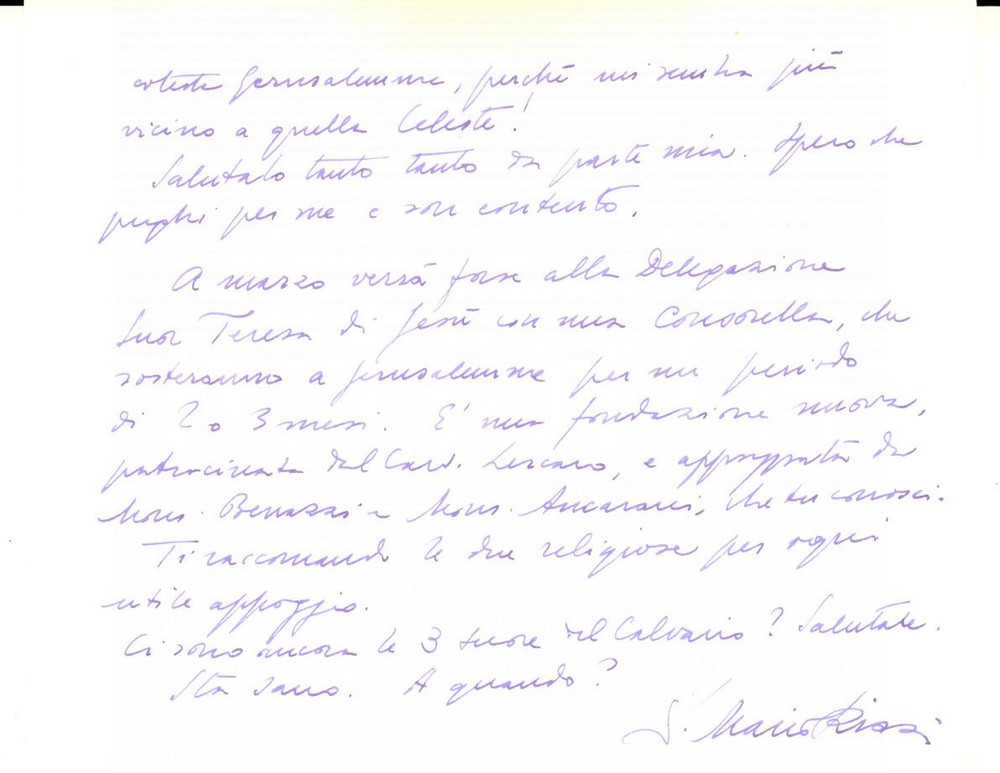 codesta Gerusalemme, perché mi sembra più
vicino a quella Celeste!
Salutalo tanto tanto da parte mia. Spero che
preghi per me e son contento.
A marzo verrà forse alla Delegazione
Suor Teresa di Gesù con una Consorella, che
sosteranno a Gerusalemme per un periodo
di 2 o 3 mesi. E' una fondazione nuova,
patrocinata dal Card. Lercaro, e appoggiata da
Mons. Benazzi e Mons. Ancarani, che tu conosci.
Ti raccomando le due religiose per ogni
utile appoggio.
Ci sono ancora le 3 suore del Calvario? Salutale.
Sta sano. A quando?
Mario